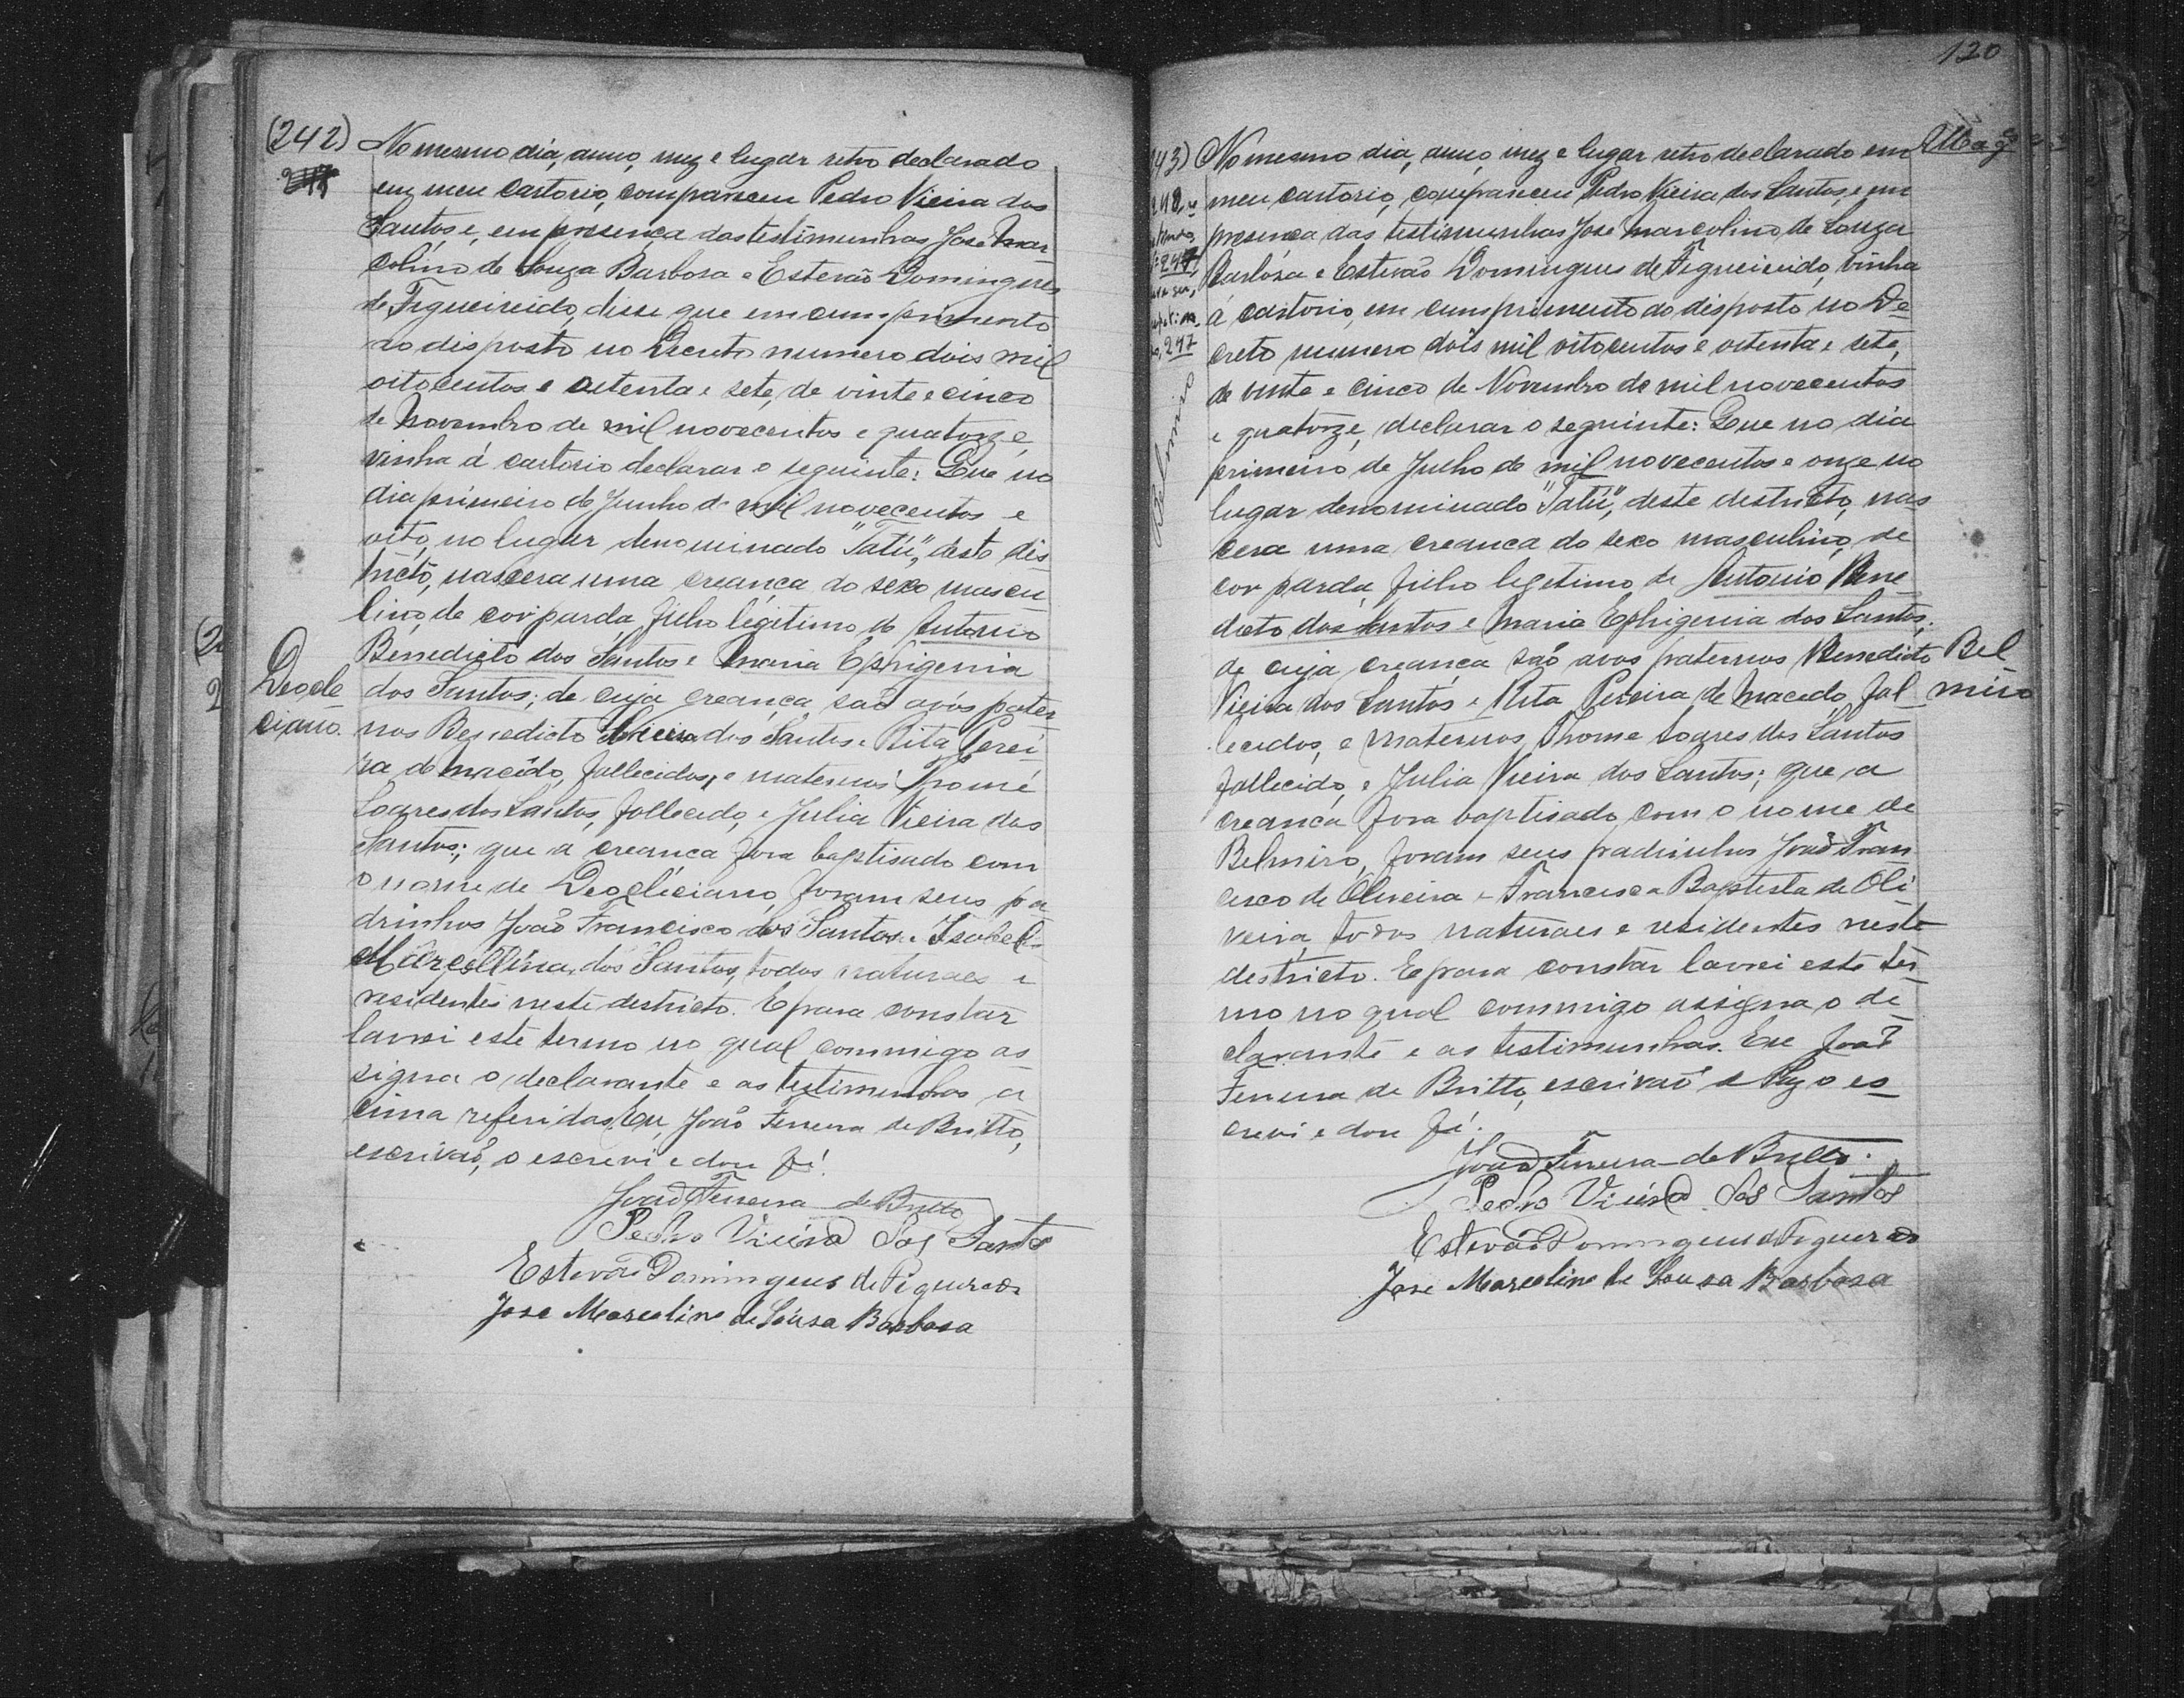 (242)
No mesmo dia, anno, mez e lugar retro declarado
em meu cartorio, compareceu Pedro Vieira dos
Santos e, em presença das testimunhas José Mar
colino de Souza Barbosa e Estevão Domingues
de Figueireido, disse que em cumprimento
do disposto no Decreto numero dois mil
oitocentos e oitenta e sete, de vinte e cinco
de Novembro de mil novecentos e quatorze,
vinha á cartorio declarar o seguinte: Que no
dia primeiro de Junho de mil novecentos e
oito, no lugar denominado "Tatú", deste dis
tricto, nascera uma creança do sexo mascu
lino, de côr parda, filho legitimo de Antonio
Benedicto dos Santos e Maria Ephigenia
dos Santos; de cuja creança são avós pater
nos Benedicto Vieira dos Santos e Rita Perei
ra de Macêdo, fallecidos, e maternos Thomé
Soares dos Santos, fallecido, e Julia Vieira dos
Santos; que a creança fora baptisado com
o nome de Deocliciano, foram seus pa
drinhos João Francisco dos Santos e Isabel
Marcollina dos Santos, todos naturaes e
residentes neste destricto. E para constar
lavrei este termo no qual commigo as
signa o declarante e as testimunhas a
cima referidas. Eu, João Ferreira de Britto,
escrivão, o escrevi e dou fé.
João Ferreira de Britto
Pedro Vieira dos Santos
Estevão Domingues de Figueredo
Jose Marcolino de Sousa Barbosa
Deocle
ciano.
120
43)
No mesmo dia, anno, mez e lugar retro declarado em
meu cartorio, compareceu Pedro Vieira dos Santos, e em
presença das testimunhas José Marcolino de Souza
Barbosa e Estevão Domingues de Figueireido, vinha
á cartorio, em cumprimento do disposto no De
creto numero dois mil oitocentos e oitenta e sete,
de vinte e cinco de Novembro de mil novecentos
e quatorze, declarar o seguinte: Que no dia
primeiro de Julho de mil novecentos e onze no
lugar denominado "Tatú", deste destricto, nas
cera uma creança do sexo masculino, de
cor parda, filho legitimo de Antonio Bene
dicto dos Santos e Maria Ephigenia dos Santos;
de cuja creança são avos paternos Benedicto
Vieira dos Santos e Rita Pereira de Macedo, fal
lecidos, e maternos Thome Soares dos Santos
fallecido, e Julia Vieira dos Santos; que a
creança fora baptisado com o nome de
Belmiro, foram seus padrinhos João Fran
cisco de Oliveira e Francisca Baptista de Oli
veira, todos naturaes e residentes neste
destricto. E para constar lavrei este ter
mo no qual commigo assigna o de
clarante e as testimunhas. Eu João
Ferreira de Britto, escrivão de Paz o es
crevi e dou fé.
João Ferreira de Britto.
Pedro Vieira dos Santos
Estevão Domingues de Figueredo
Jose Marcolino de Sousa Barbosa
Bel
miro
247
Belmiro